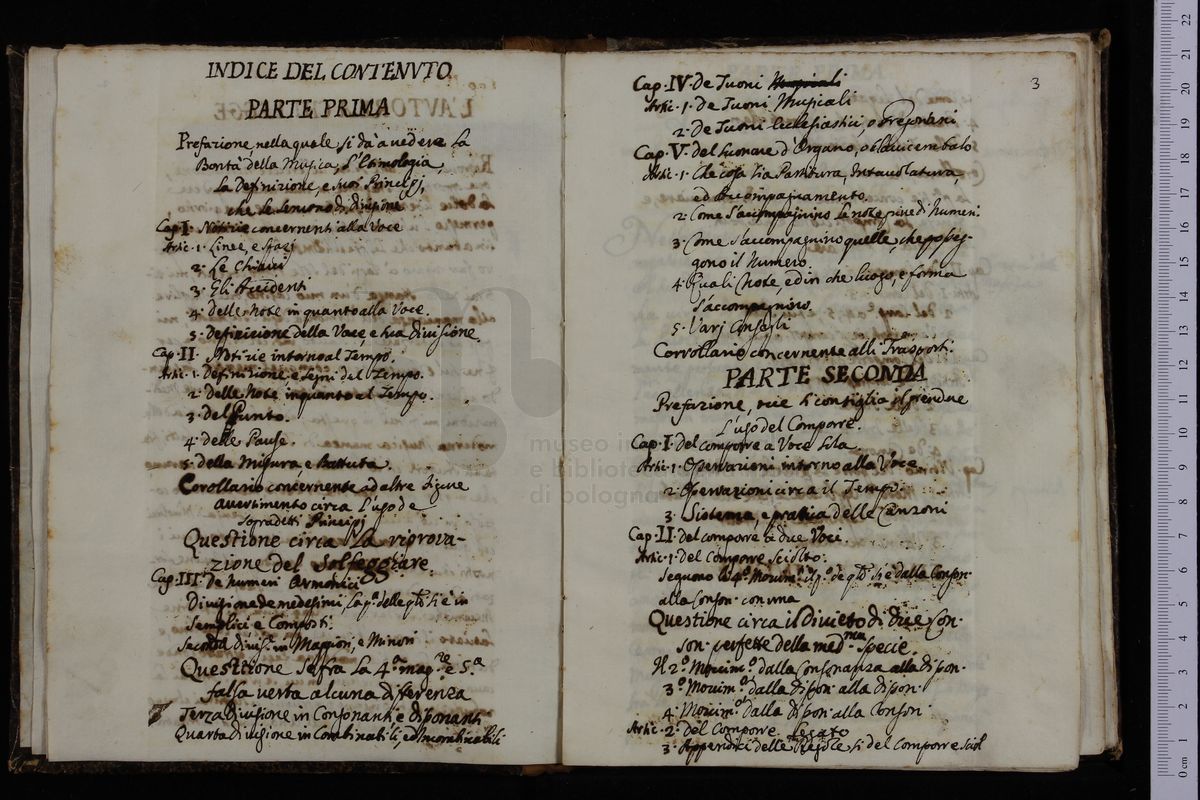 INDICE DEL CONTENVTO
PARTE PRIMA
Prefazione nella quale si dà a vedere la
Bontà della Musica, l'Etimologia,
La Definizione, e suoi Principj,
che le servono di divisione
Cap. I. Notizie concernenti alla Voce
Artic. 1. Linee, e Spazj
2. Le Chiavi
3. Gli Accidenti
4. delle Note in quanto alla Voce.
5. Definizione della Voce, e sua divisione.
Cap. II. Notizie intorno al Tempo.
Artic. 1. Definizione, e segni del Tempo.
2. delle Note inquanto al Tempo.
3. del Punto.
4. delle Pause.
5. della Misura e Battuta.
Corollario concernente ad altre figure
Avertimento circa l'uso de
sopradetti Principj
Questione circa la riprova-
zione del Solfeggiare
Cap. III. De numeri Armonici
Divisione de medesimi, la pª delle qli si è in
Semplici e Composti.
Seconda divis. in Maggiori, e Minori
Questione se fra la 4ª magre e 5ª
falsa verta alcuna diferenza
Terza divisione in Consonanti e disonanti
Quarta divisione in Combinabili, ed Incombinabili
3
Cap. IV. de Tuoni Musicali
Artic. 1. de Tuoni Musicali
2. de Tuoni Ecclesiastici, o Gregoriani
Cap. V. del suonare d'Organo, o Clavicembalo
Artic. 1. Che cosa sia Partitura, Intavolatura,
ed Accompagnamento.
2. Come s'accompagnino le note prive di Numeri.
3. Come s'accompagnino quelle, che posseg-
gono il Numero.
4. Quali Note, ed in che luogo, e forma
s'accompagnino.
5. Varj Consigli
Corrollario concernente alli Trasporti.
PARTE SECONDA
Prefazione, ove si consiglia il prendere
l'uso del Comporre.
Cap. I. del comporre a Voce Sola
Artic. 1. Osservazioni intorno alla Voce
2. Osservazioni circa il Tempo.
3. Sistema, e pratica delle Canzoni
Cap. II. del comporre à due Voci.
Artic. 1. Del Comporre Sciolto.
Seguono li 4º Movimti il pº de qli si è dalla Conson.
alla Conson. con una
Questione circa il Divieto di due Con-
son. perfette della medma specie.
Il 2º Movimº dalla Consonanza alla dison.
3º Movimº dalla dison. alla dison.
4. Movimº dalla dison. alla Conson.
Artic. 2. Del Comporre Legato
3. Appendici delle Regole si del Comporre Sciol
museo in
e bibliote
di bologna